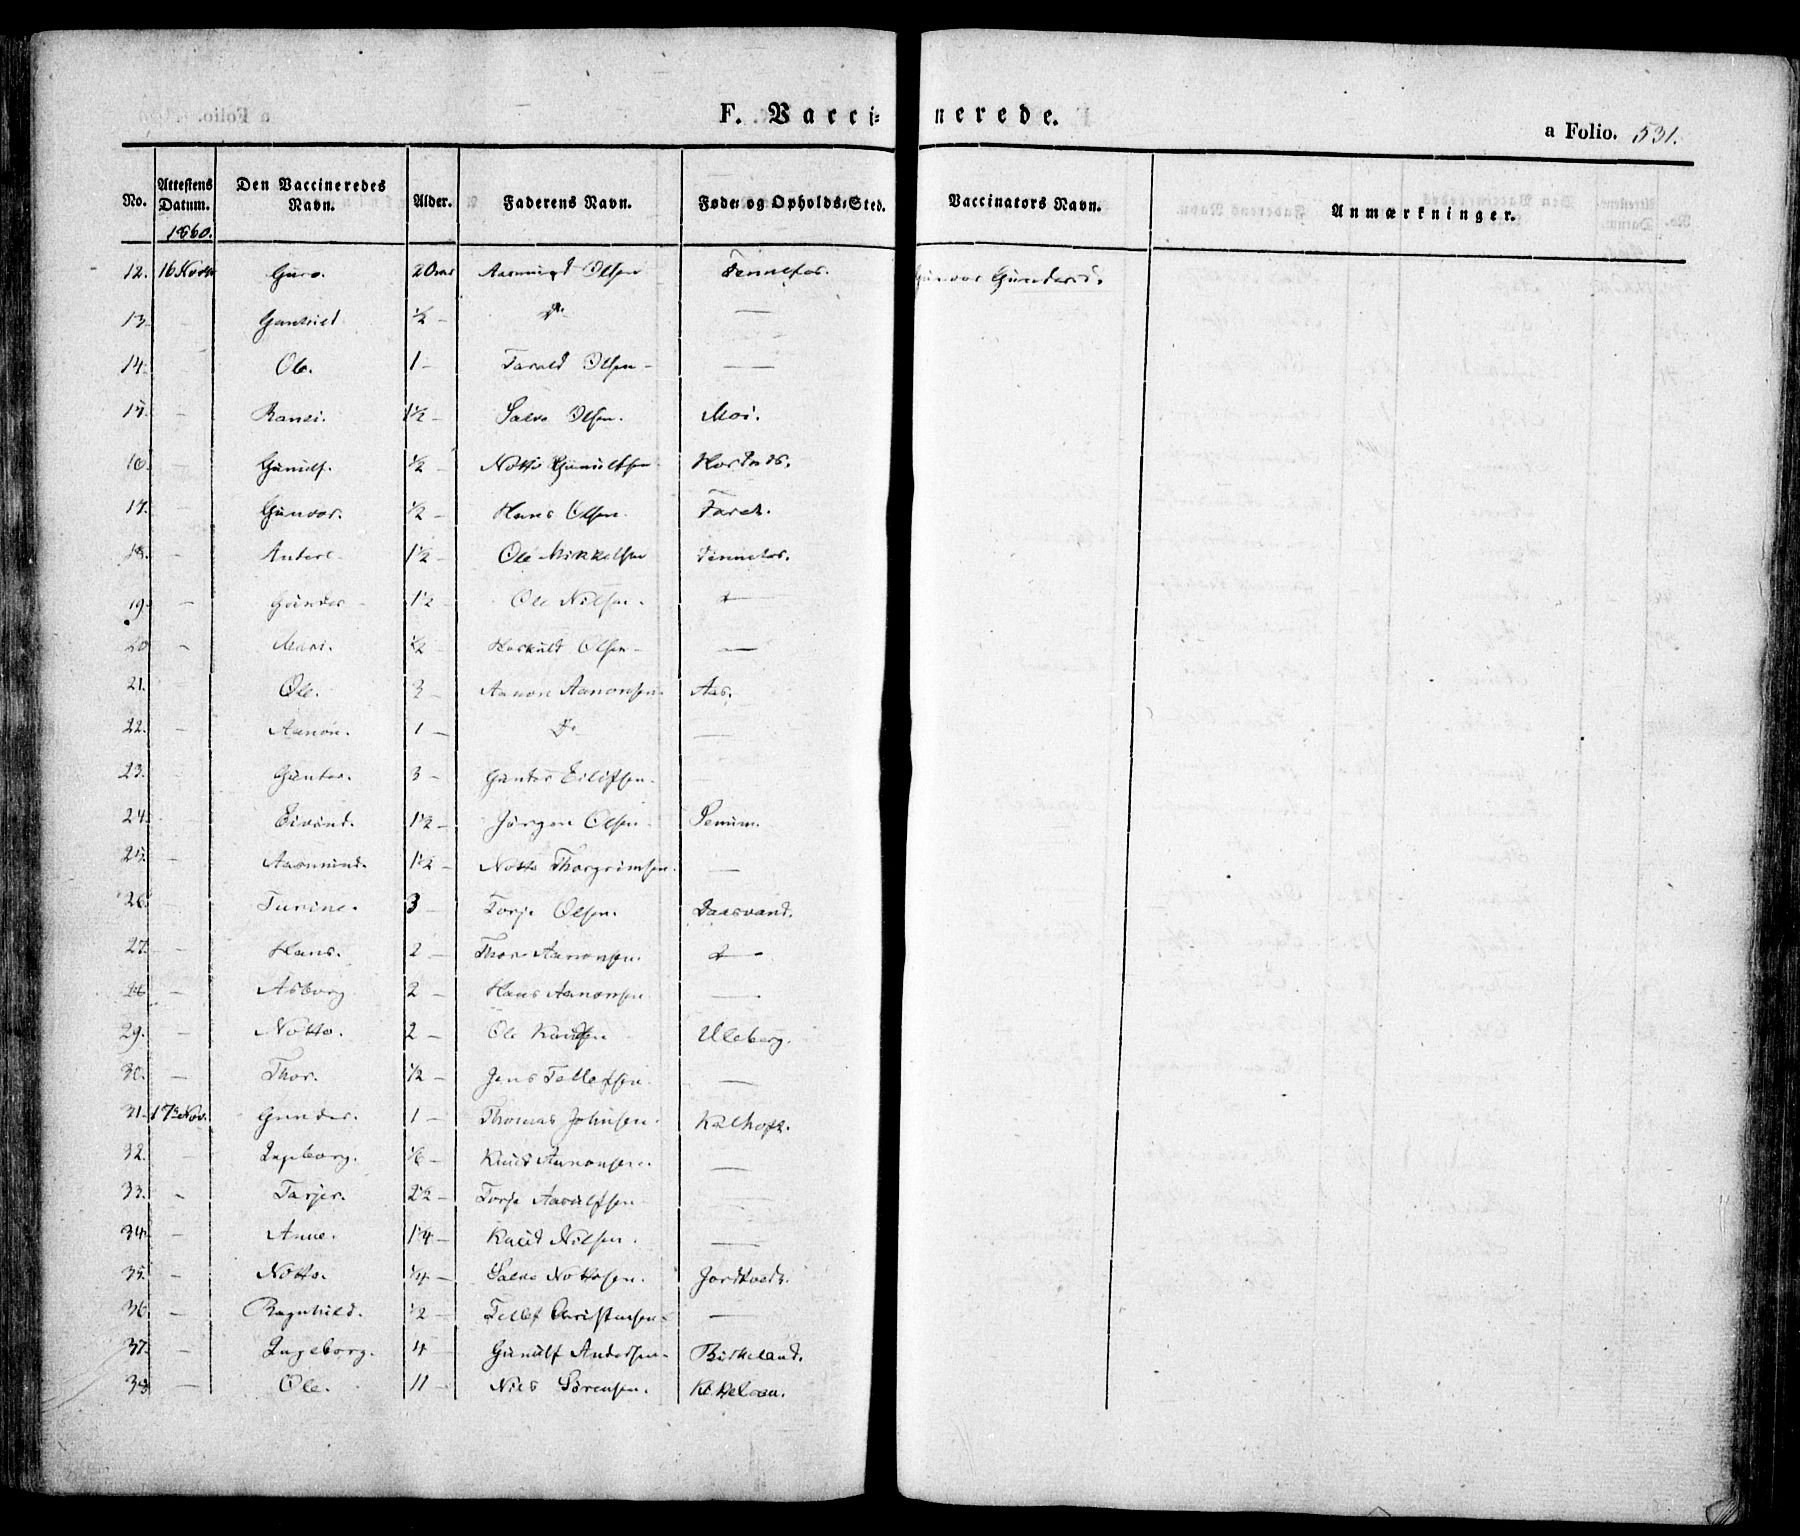 F. Vaccinerede.
a Folio. 531.
No. Attestens Datum. Den Vaccineredes Navn. Alder. Faderens Navn. Føde- og Opholds-Sted. Vaccinators Navn. Anmærkninger.
1860.
12. 16 Novbr Guro. 2 Aar Aasmund Olsen Tennefos. Gunvor Gundersd.
13. Gunhild ½ — Do —
14. Ole. 1 — Tarald Olsen — —
15. — Ranei. 1½ — Salve Olsen. Moi.
16. Gunulf. ½ — Notto Gunulfsen
17. — Gunvor. ½ — Hans Olsen. Faret.
18. — Anders 1½ — Ole Mikkelsen Tennefos.
19. — Gunder — 1½ — Ole Nilsen. —
20 — Mari. ½ — Olsen — —
21. — Ole. 3 — Aanon Aanonsen Aas.
22. — Aanon. 1 — Do —
23. — Gunder. 3 — Gunder Eilifsen. —
24. Eivind. 1½ — Jørgen Olsen
25. — Aasmund. 1½ — Notto Thorgrimsen. —
26. — Turine. 3 — Torje Olsen. Daasvand.
27. — Hans. 2 — Thor Aanonsen. —
28 — Asborg 2 — Hans Aanonsen —
29. — Notto. 2 — Ole Knudsen Uleberg.
30. — Thor. ½ — Jens Tellefsen. —
31. 17de Nov. Gunder. 1 — Thomas Johnsen. Kalhoft.
32. — Ingeborg. Knud Aanonsen. —
33. — Tarjer. 2½ — Torje Aasulfsen —
34. — Anne. 1¼ — Knud Nilsen. —
35. — Notto. ¼ — Salve Nottosen. Jordtveit.
36 — Ragnhild. ½ — Tellef Christensen —
37. — Ingeborg. 4 — Gunulf Andersen. Birkeland.
38 — Ole. 11 — Niels Sørensen.